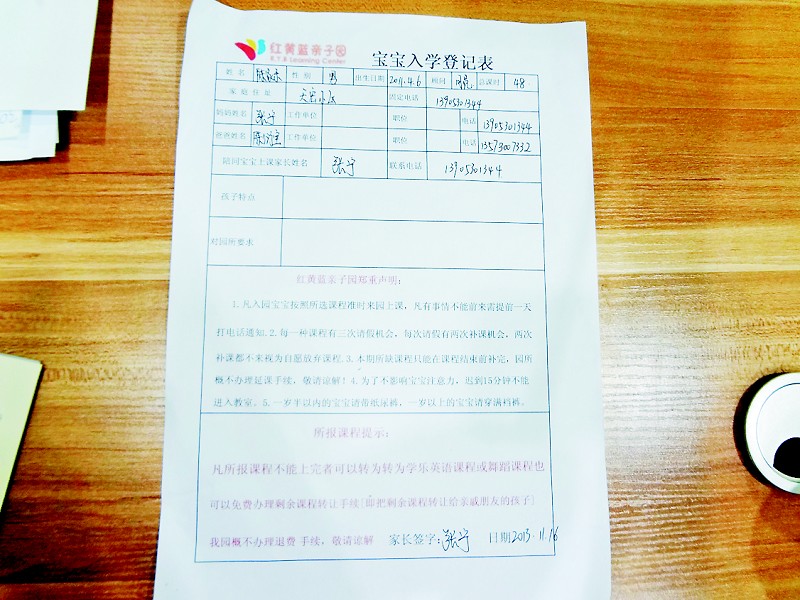 红黄蓝亲子园
Learning Center
宝宝入学登记表
姓名 性别 男 出生日期 2011.4.6 顾问 总课时 48
家庭住址 固定电话 13905301344
妈妈姓名 张宁 工作单位 职位 电话 13905301344
爸爸姓名 工作单位 职位 电话 13573007332
陪同宝宝上课家长姓名 张宁 联系电话 13905301344
孩子特点
对园所要求
红黄蓝亲子园郑重声明：
1.凡入园宝宝按照所选课程准时来园上课，凡有事情不能前来需提前一天
打电话通知.2.每一种课程有三次请假机会，每次请假有两次补课机会，两次
补课都不来视为自愿放弃课程.3.本期所缺课程只能在课程结束前补完，因所
概不办理延课手续，敬请谅解！4.为了不影响宝宝注意力，迟到15分钟不能
进入教室。5.一岁半以内的宝宝请带纸尿裤，一岁以上的宝宝请穿满裆裤。
所报课程提示：
凡所报课程不能上完者可以转为转为学乐英语课程或舞蹈课程也
可以免费办理剩余课程转让手续[即把剩余课程转让给亲戚朋友的孩子]
我园概不办理退费 手续，敬请谅解 家长签字：张宁 日期2013.11.16